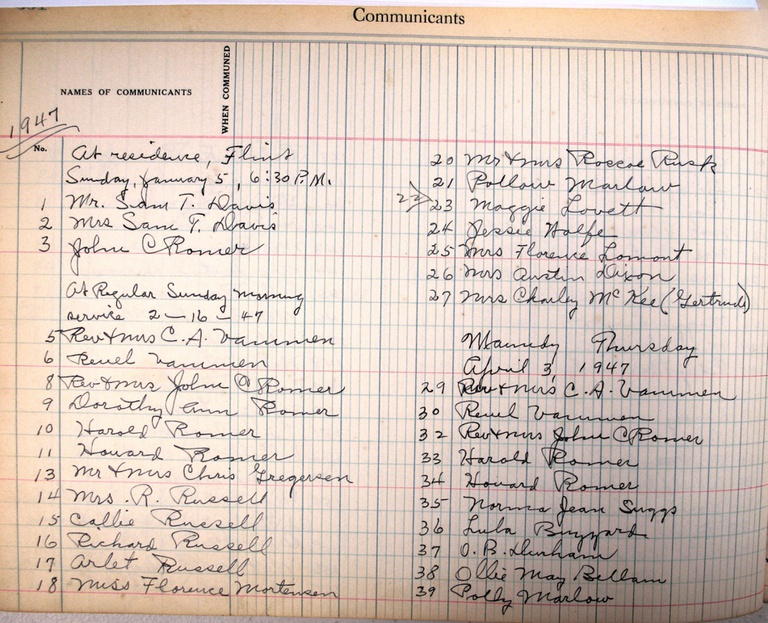 Communicants
NAMES OF COMMUNICANTS
WHEN COMMUNED
1947
No.
At residence, Flint
Sunday, January 5, 6:30 P.M.
1 Mr. Sam T. Davis
2 Mrs Sam T. Davis
3 John C Romer
At Regular Sunday Morning
service 2-16-47
5 Rev & Mrs C. A. Vammen
6 Reuel Vammen
8 Rev & Mrs John C Romer
9 Dorothy Ann Romer
10 Harold Romer
11 Howard Romer
13 Mr & Mrs Chris Gregersen
14 Mrs. R. Russell
15 Callie Russell
16 Richard Russell
17 Arlet Russell
18 Miss Florence Mortensen
20 Mr & Mrs Roscoe Rusk
21 Pollow Marlow
22
23 Maggie Lovett
24 Jessie Wolfe
25 Mrs Florence Lomont
26 Mrs Austin Dixon
27 Mrs Charley McKee (Gertrude)
Maundy Thursday
April 3, 1947
29 Rev & Mrs C. A. Vammen
30 Reuel Vammen
32 Rev & Mrs John C Romer
33 Harold Romer
34 Howard Romer
35 Norma Jean Suggs
36 Lula Buzzard
37 O. B. Durham
38 Ollie May Bellam
39 Polly Marlow